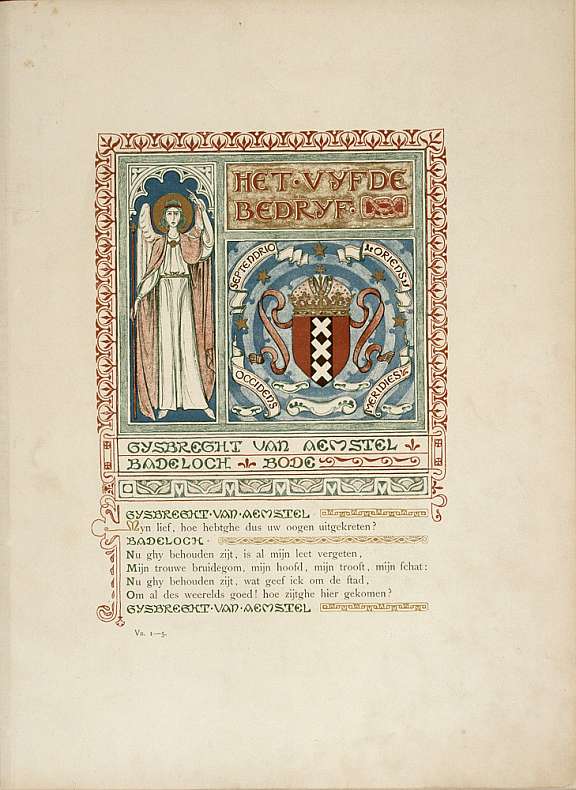 HET·VYFDE
BEDRYF·
SEPTENDRIO
ORIENS
OCCIDENS
MERIDIES
GYSBREGHT VAN AEMSTEL
BADELOCH BODE
GYSBREGHT·VAN·AEMSTEL·
Myn lief, hoe hebtghe dus uw oogen uitgekreten?
BADELOCH·
Nu ghy behouden zijt, is al mijn leet vergeten,
Mijn trouwe bruidegom, mijn hoofd, mijn trooſt, mijn ſchat:
Nu ghy behouden zijt, wat geef ick om de ſtad,
Om al des weerelds goed! hoe zijtghe hier gekomen?
GYSBREGHT·VAN·AEMSTEL
Vs. 1—5.